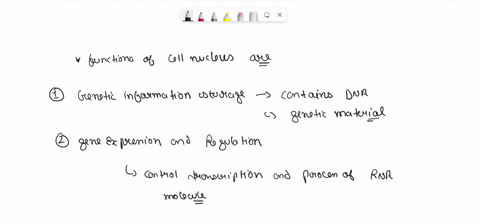 * functions of cell nucleus are
① Genetic information storage → contains DNA
↳ genetic material
② gene Expression and Regulation
↳ control transcription and process of RNA
molecule